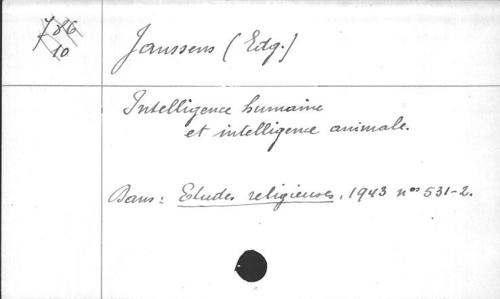 786
10
Janssens (Edg.)
Intelligence humaine
et intelligence animale.
Dans: Etudes religieuses, 1943 nos 531-2.